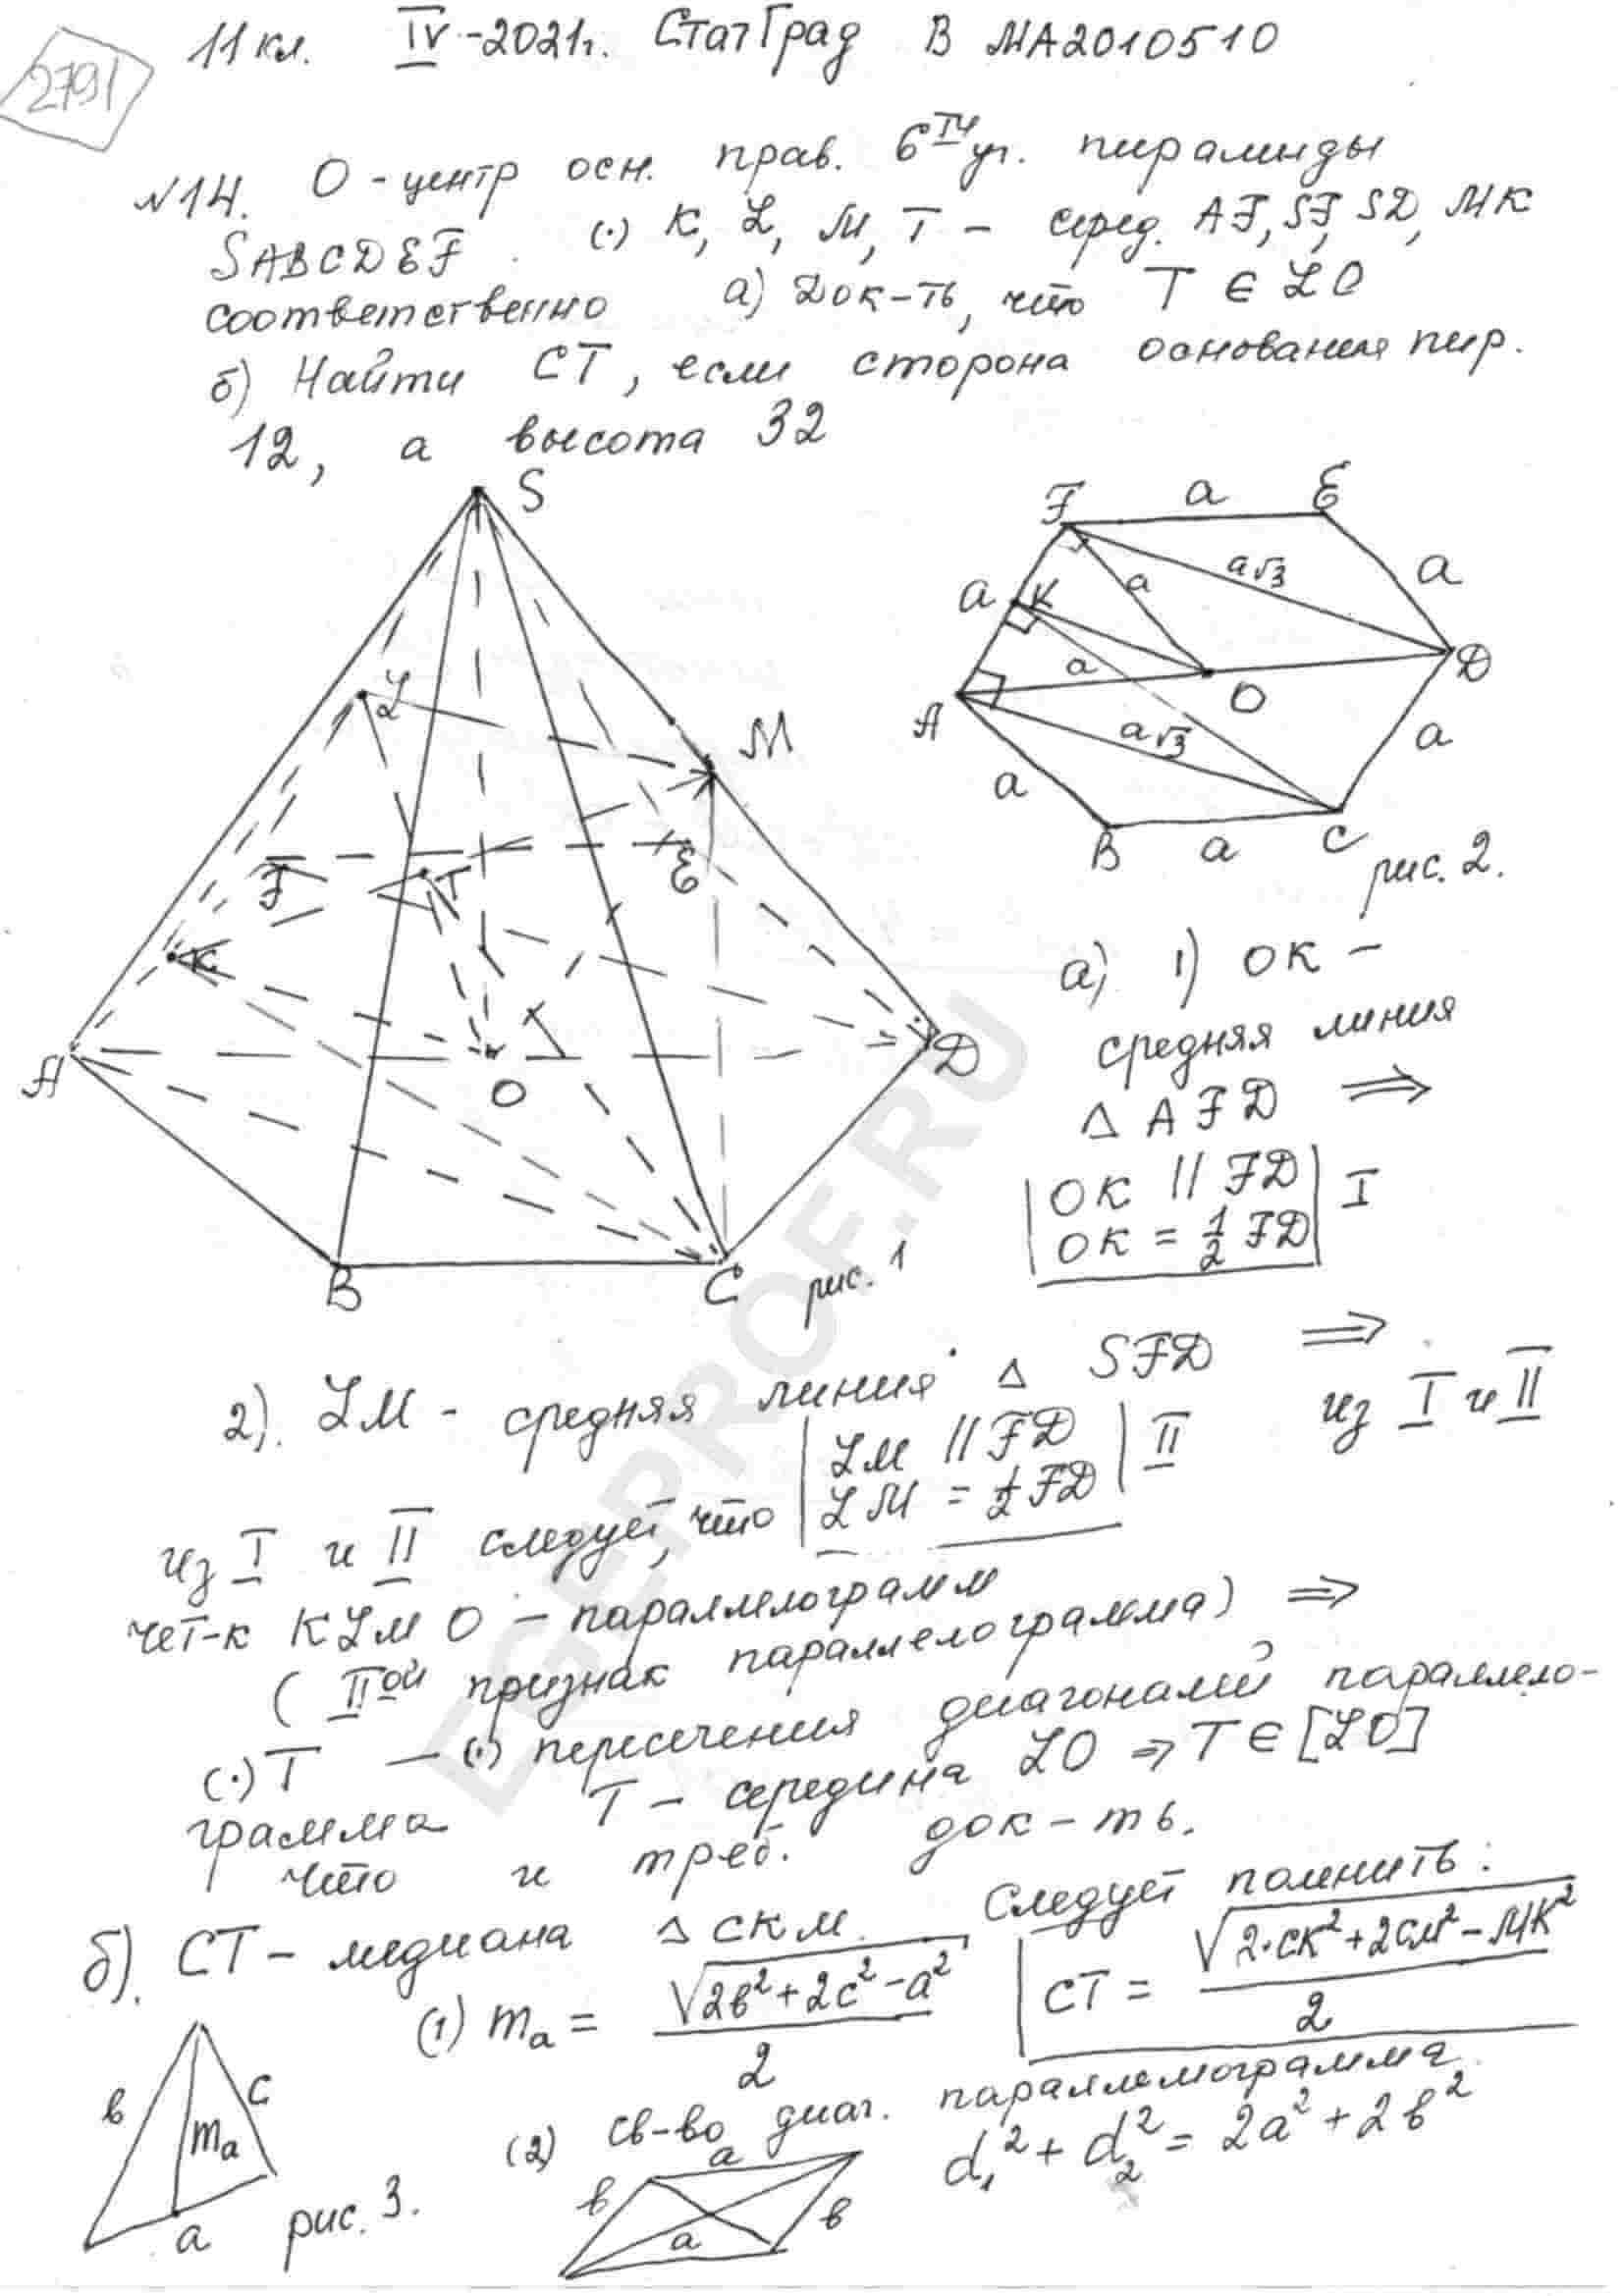 2791
11 кл. IV-2021г. СтатГрад В МА2010510
№14. О - центр осн. прав. 6ти уг. пирамиды
SABCDEF. (·) K, L, M, T - серед. AF, SF, SD, MK
соответственно а) Док-ть, что T ∈ LO
б) Найти CT, если сторона основания пир.
12, а высота 32
S
L
M
F
T
E
K
A
O
D
B
C
рис. 1
F
a
E
a
a√3
a
K
a
A
a
O
D
a√3
a
a
B
a
C
рис. 2.
а) 1) OK -
средняя линия
△ AFD ⇒
OK || FD
OK = 1/2 FD
I
2). LM - средняя линия △ SFD ⇒
LM || FD
LM = 1/2 FD
II
из I и II
из I и II следует, что
чет-к KLMO - параллелограмм
(IIой признак параллелограмма) ⇒
(·) T - (·) пересечения диагоналей параллело-
грамма T - середина LO ⇒ T ∈ [LO]
что и треб. док-ть.
б). CT - медиана △ CKM. Следует помнить:
(1) mₐ = √(2в² + 2с² - a²) / 2
CT = √(2·CK² + 2CM² - MK²) / 2
в
c
mₐ
a
рис. 3.
(2) св-во диаг. параллелограмма
d₁² + d₂² = 2a² + 2в²
a
в
в
a
EGEPROF.RU